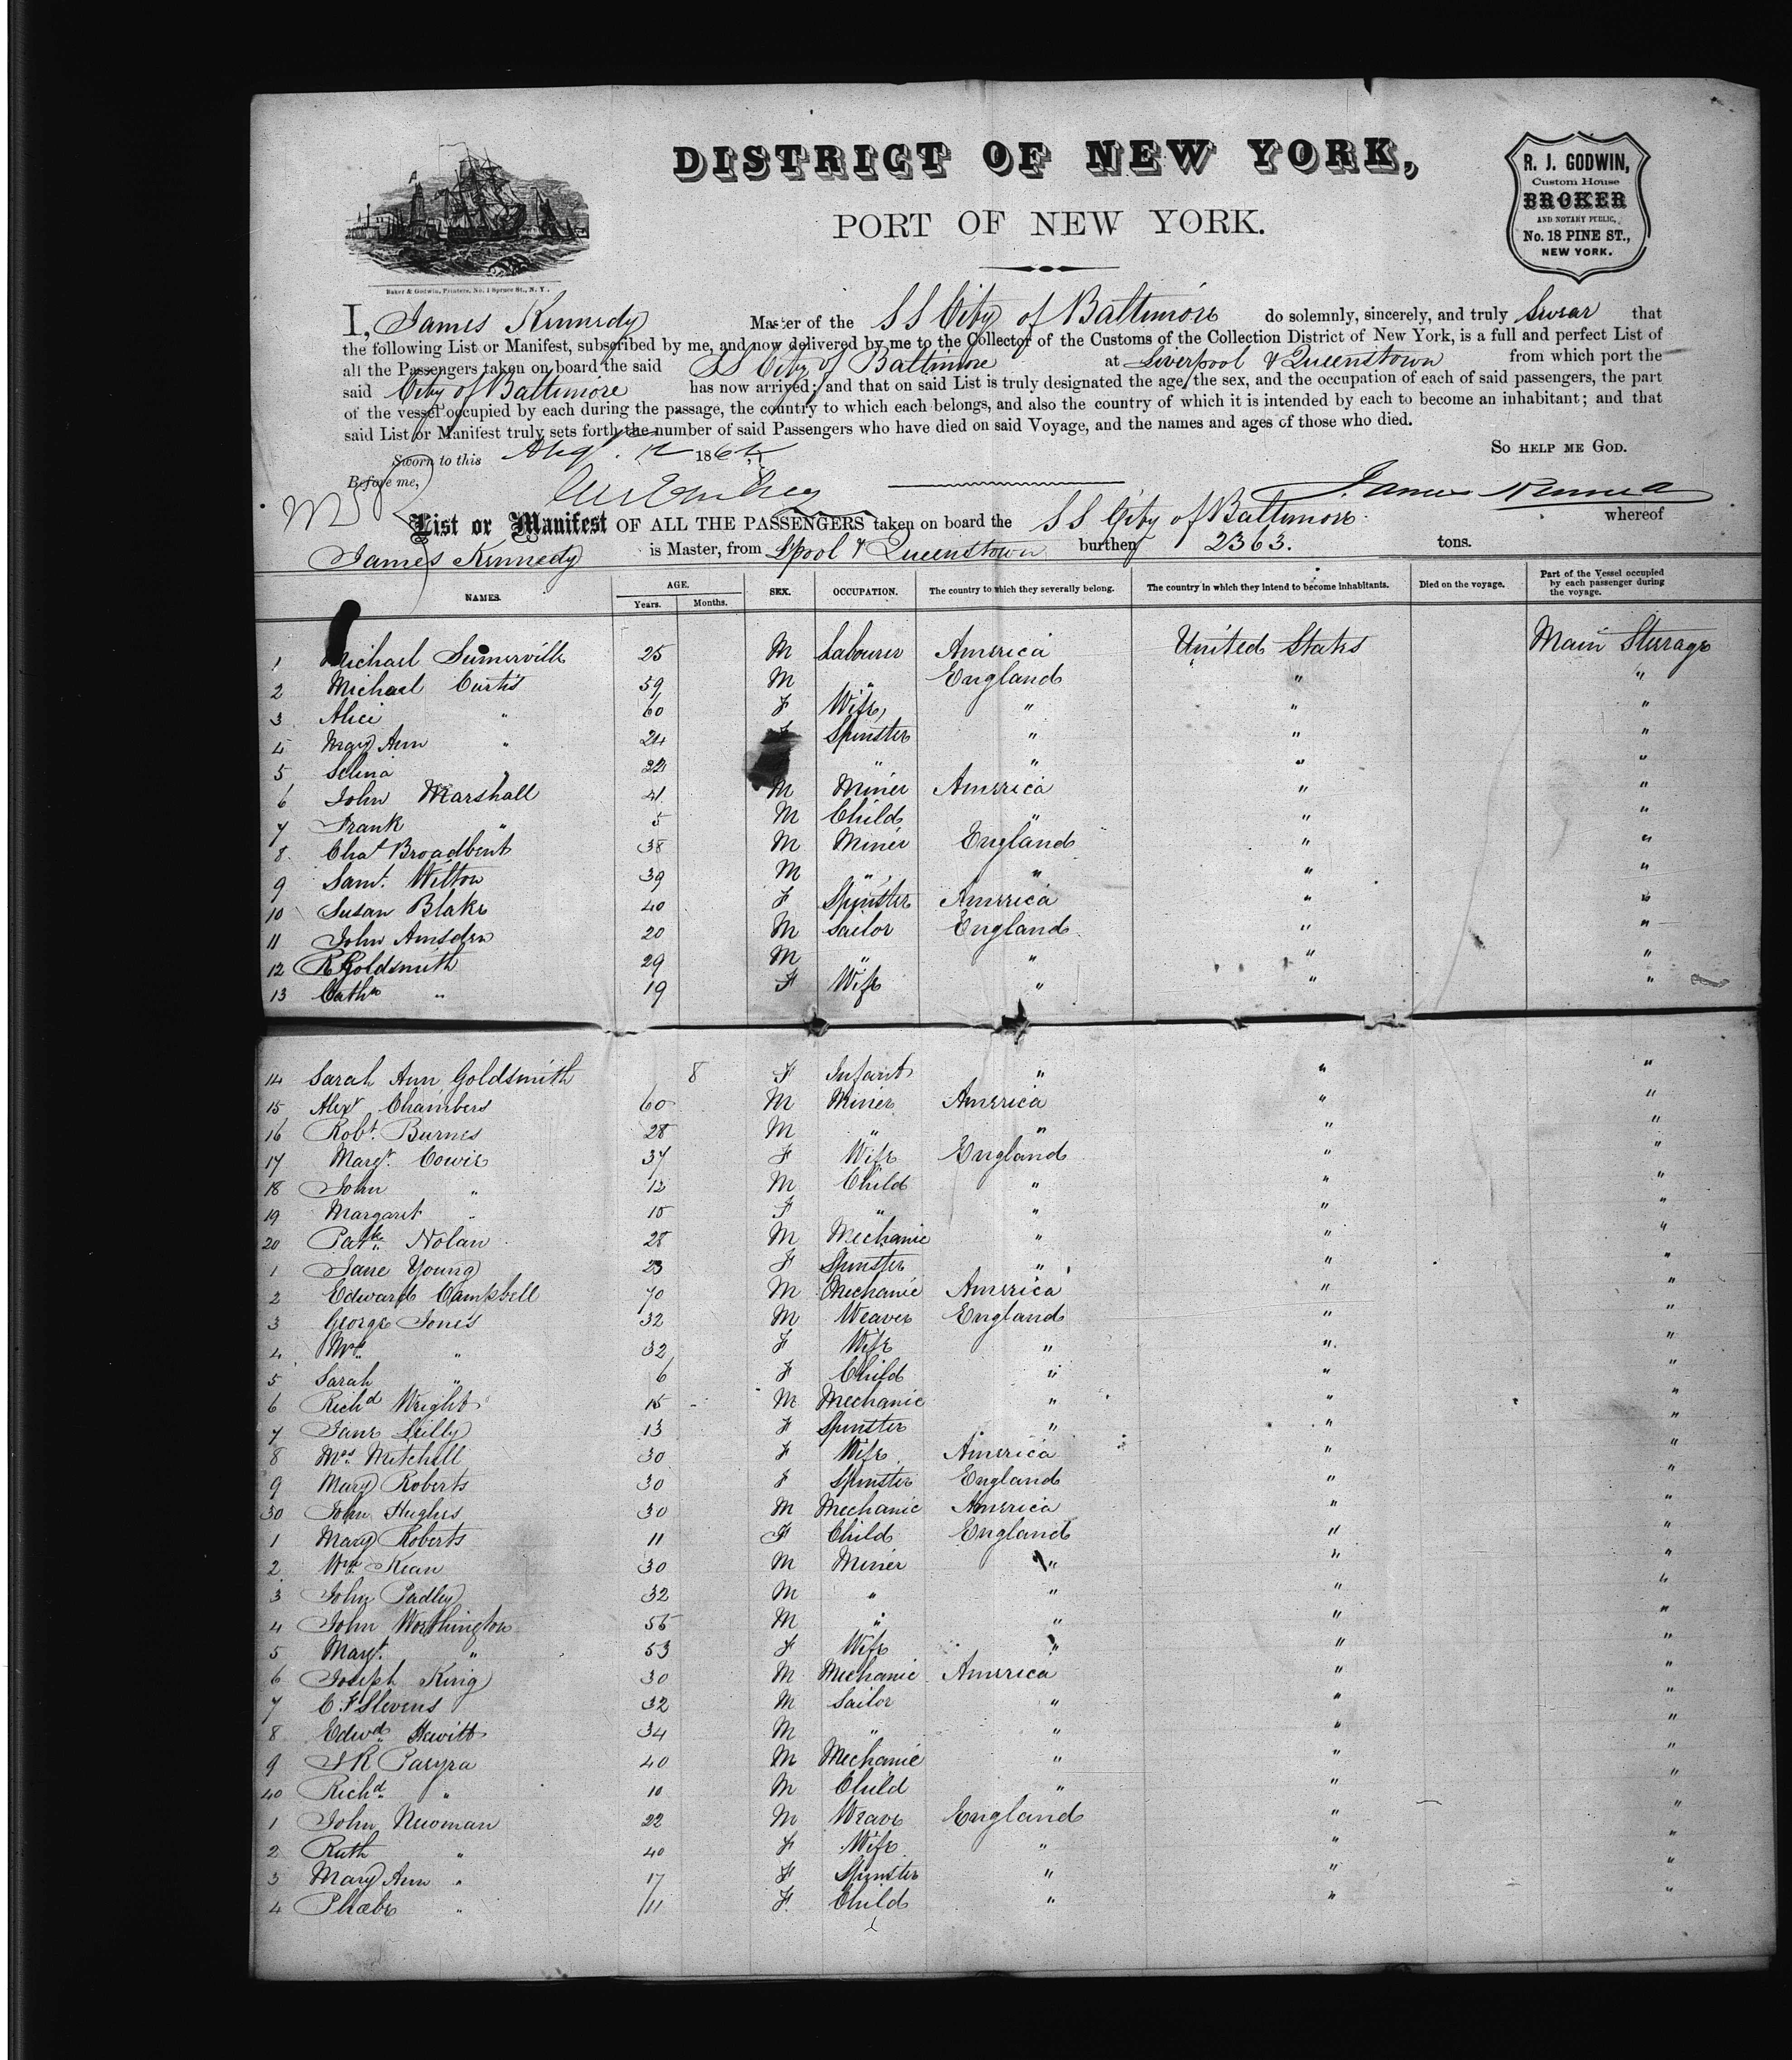 DISTRICT OF NEW YORK,
PORT OF NEW YORK.
R. J. GODWIN,
Custom House
BROKER
AND NOTARY PUBLIC,
No. 18 PINE ST.,
NEW YORK.
Baker & Godwin, Printers, No. 1 Spruce St., N. Y.
I, James Kennedy Master of the SS City of Baltimore do solemnly, sincerely, and truly swear that
the following List or Manifest, subscribed by me, and now delivered by me to the Collector of the Customs of the Collection District of New York, is a full and perfect List of
all the Passengers taken on board the said SS City of Baltimore at Liverpool & Queenstown from which port the
said City of Baltimore has now arrived; and that on said List is truly designated the age, the sex, and the occupation of each of said passengers, the part
of the vessel occupied by each during the passage, the country to which each belongs, and also the country of which it is intended by each to become an inhabitant; and that
said List or Manifest truly sets forth the number of said Passengers who have died on said Voyage, and the names and ages of those who died.
Sworn to this Aug. 12 186
SO HELP ME GOD.
Before me,
James
List or Manifest OF ALL THE PASSENGERS taken on board the SS City of Baltimore whereof
James Kennedy is Master, from L'pool & Queenstown burthen 2363. tons.
NAMES. AGE. Years. Months. SEX. OCCUPATION. The country to which they severally belong. The country in which they intend to become inhabitants. Died on the voyage. Part of the Vessel occupied by each passenger during the voyage.
1 Michael Sumerville 25 M Labourer America United States Main Sturage
2 Michael Curtis 59 M " England " "
3 Alice " 60 F Wife " " "
4 Mary Ann " 24 F Spinster " " "
5 Selina " 22 " " " "
6 John Marshall 41 M Miner America " "
7 Frank " 5 M Child " " "
8 Chas Broadbent 38 M Miner England " "
9 Saml. Wilton 39 M " " " "
10 Susan Blake 40 F Spinster America " "
11 John Amsden 20 M Sailor England " "
12 R Goldsmith 29 M " " " "
13 Cathe " 19 F Wife " " "
14 Sarah Ann Goldsmith 8 F Infant " " "
15 Alexr Chambers 60 M Miner America " "
16 Robt. Burnes 28 M " " " "
17 Margt. Cowie 37 F Wife England " "
18 John " 12 M Child " " "
19 Margaret " 10 F " " " "
20 Patk. Nolan 28 M Mechanic " " "
1 Jane Young 23 F Spinster " " "
2 Edward Campbell 70 M Mechanic America " "
3 George Jones 32 M Weaver England " "
4 Mrs " 32 F Wife " " "
5 Sarah " 6 F Child " " "
6 Richd Wright 15 M Mechanic " " "
7 Jane 13 F Spinster " " "
8 Mrs. Mitchell 30 F Wife America " "
9 Mary Roberts 30 F Spinster England " "
30 John Hughes 30 M Mechanic America " "
1 Mary Roberts 11 F Child England " "
2 Wm. Kean 30 M Miner " " "
3 John Padley 32 M " " " "
4 John Worthington 55 M " " " "
5 Margt. " 53 F Wife " " "
6 Joseph King 30 M Mechanic America " "
7 C. F Stevens 32 M Sailor " " "
8 Edwd. Hewitt 34 M " " " "
9 40 M Mechanic " " "
40 Richd. " 10 M Child " " "
1 John Newman 22 M Weave England " "
2 Ruth " 40 F Wife " " "
3 Mary Ann " 17 F Spinster " " "
4 Phœbe " 11 F. Child " " "